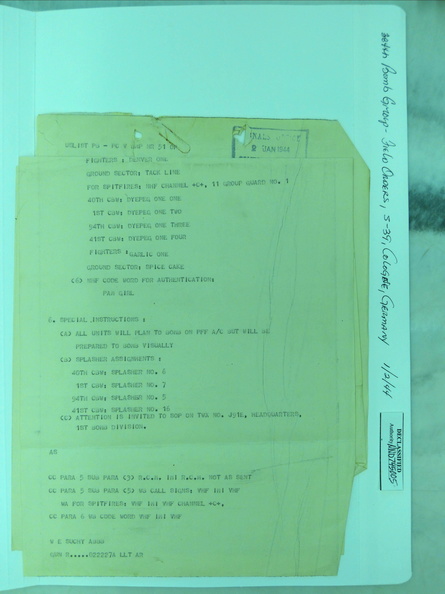 384th Bomb Group - Field Orders, S-39, Cologne, Germany 1/2/44
DECLASSIFIED
Authority
2 JAN 1944
FIGHTERS : DENVER ONE
GROUND SECTOR: TACK LINE
FOR SPITFIRES: VHF CHANNEL +C+, 11 GROUP GUARD NO. 1
40TH CBW: DYEPER ONE ONE
1ST CBW: DYEPER ONE TWO
94TH CBW: DYEPER ONE THREE
41ST CBW: DYEPER ONE FOUR
FIGHTERS : GARLIC ONE
GROUND SECTOR: SPICE CAKE
(6) VHF CODE WORD FOR AUTHENTICATION:
6. SPECIAL INSTRUCTIONS :
(A) ALL UNITS WILL PLAN TO BOMB ON PFF A/C BUT WILL BE
PREPARED TO BOMB VISUALLY
(B) SPLASHER ASSIGNMENTS :
40TH CBW: SPLASHER NO. 6
1ST CBW: SPLASHER NO. 7
94TH CBW: SPLASHER NO. 5
41ST CBW: SPLASHER NO. 16
(C) ATTENTION IS INVITED TO SOP ON TWX NO. HEADQUARTERS,
1ST BOMB DIVISION.
AS
CC PARA 5 SUB PARA C5) R.C.M. IMI R.C.M. NOT AS SENT
CC PARA 5 SUB PARA C5) WA CALL SIGNS: VHF IMI VHF
WA FOR SPITFIRES: VHF IMI VHF CHANNEL +C+,
CC PARA 6 WA CODE WORD VHF IMI VHF